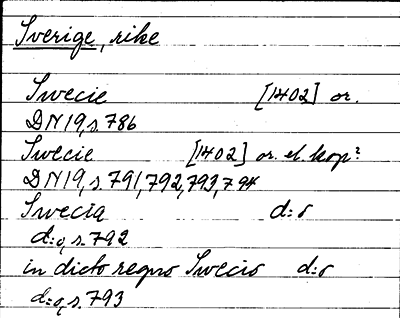 Sverige, rike
Swecie [1402] or.
DN 19, s. 786
Swecie [1402] or. el. kop?
DN 19, s. 791, 792, 793, 794
Swecia d:o
d:o, s. 792
in dicto regno Swecie d:o
d:o, s. 793